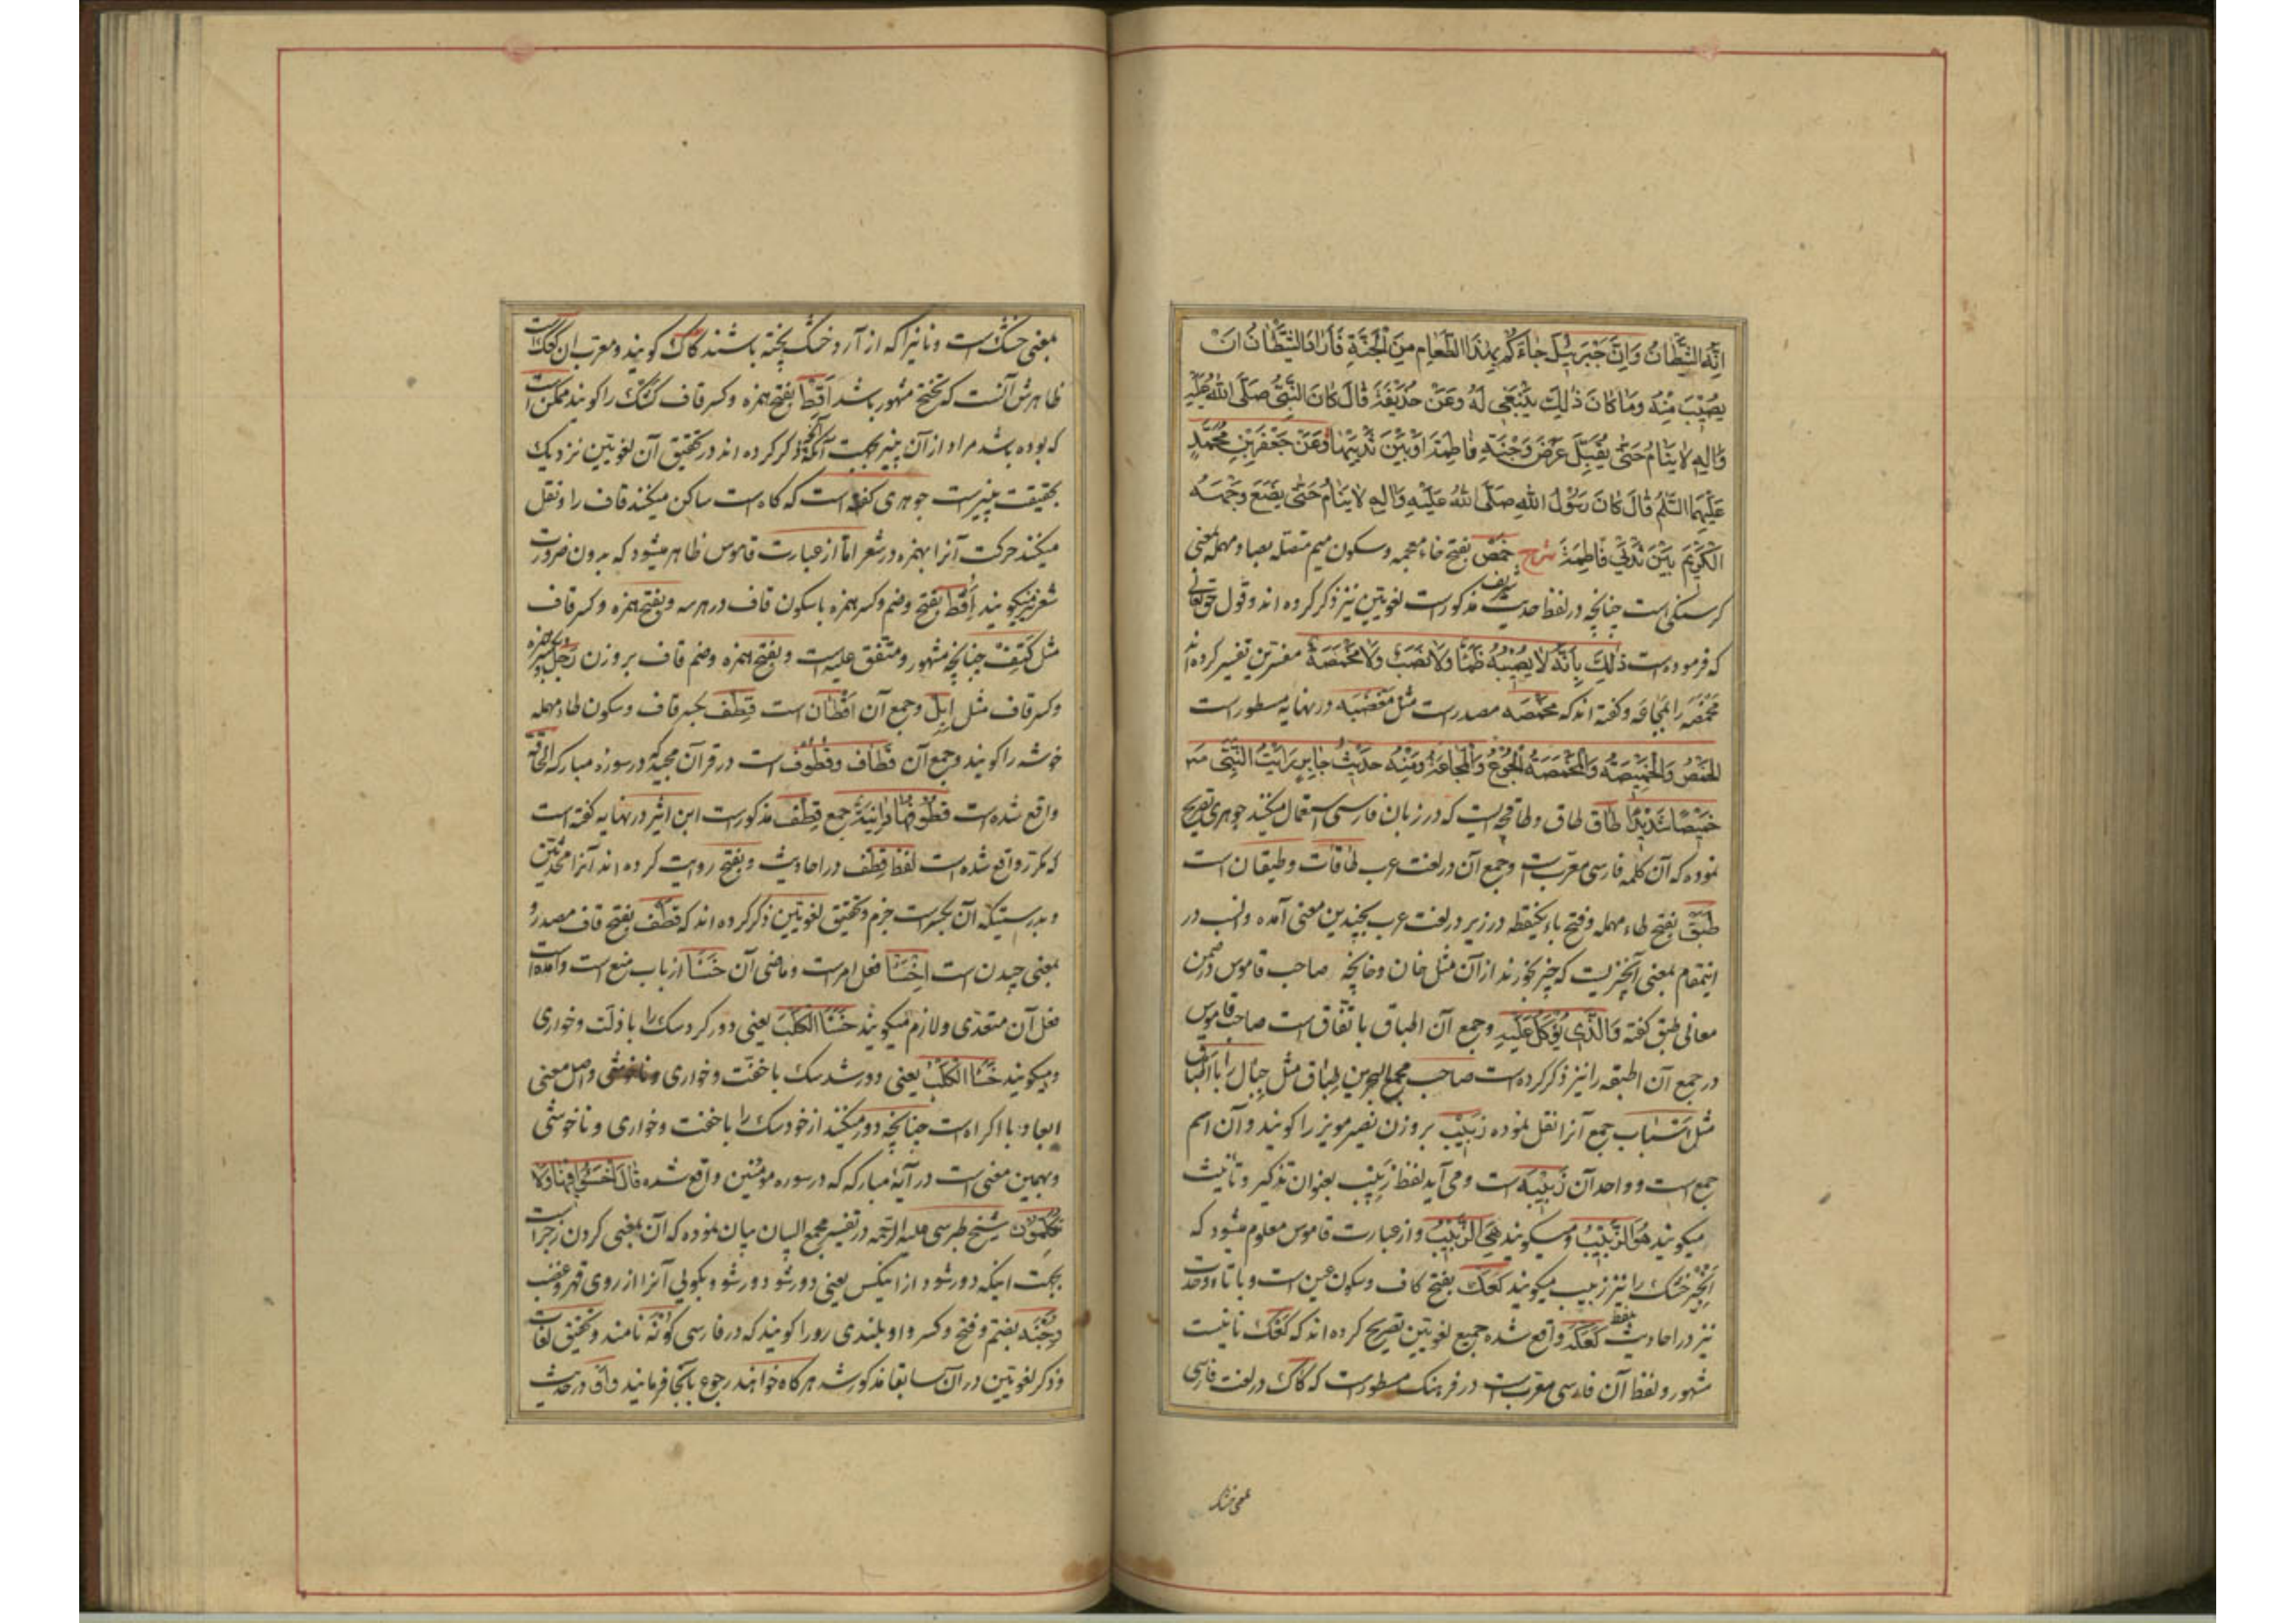 اِنَّهُ الشَّيْطَانُ وَاِنَّ جَبْرَئِيلَ جَاءَكُمْ بِهٰذَا الطَّعَامِ مِنَ الْجَنَّةِ فَاَرَادَ الشَّيْطَانُ اَنْ
يُصِيْبَ مِنْهُ وَمَا كَانَ ذٰلِكَ يَنْبَغِي لَهُ وَعَنْ حُذَيْفَةَ قَالَ كَانَ النَّبِيُّ صَلَّى اللهُ عَلَيْهِ
وَاٰلِهِ لَا يَنَامُ حَتّٰى يُقَبِّلَ عَرْضَ وَجْنَةِ فَاطِمَةَ اَوْ بَيْنَ ثَدْيَيْهَا وَعَنْ جَعْفَرِ بْنِ مُحَمَّدٍ
عَلَيْهِمَا السَّلٰمُ قَالَ كَانَ رَسُوْلُ اللهِ صَلَّى اللهُ عَلَيْهِ وَاٰلِهِ لَا يَنَامُ حَتّٰى يَضَعَ وَجْهَهُ
الْكَرِيْمَ بَيْنَ ثَدْيَيْ فَاطِمَةَ شرح خَمْص بفتح خاء معجمه وسكون ميم متصله بصاد مهمله بمعنى
كرسنكى است چنانچه در لفظ حديث شريف مذكور است لغويّين نيز ذكر كرده اند وقول حق تعالى
كه فرموده است ذٰلِكَ بِاَنَّهُ لَا يُصِيْبُهُ ظَمَأٌ وَلَا نَصَبٌ وَلَا مَخْمَصَةٌ مفسّرين تفسير كرده اند
مَخْمَصَه را بمجاعة وكفته اند كه مخمصه مصدر است مثل مَغْضَبَه در نهايه مسطور است
الخَمْصُ وَالْخَمِيْصَةُ وَالْمَخْمَصَةُ الْجُوْعُ وَالْمَجَاعَةُ وَمِنْهُ حَدِيْثُ جَابِرٍ رَاَيْتُ النَّبِيَّ ص
خَمْصًا شَدِيْدًا طاق طاق وطاقچه ايست كه در زبان فارسى استعمال ميكنند جوهرى تصريح
نموده كه آن كلمه فارسى معرّب است وجمع آن در لغت عرب طاقات وطيقان است
طَبَق بفتح طاء مهمله وفتح باء يكنقطه در زير در لغت عرب بچندين معنى آمده وانسب در
اينمقام بمعنى آنچيزيست كه چيز بخورند از آن مثل خان وخانچه صاحب قاموس در ضمن
معانى طبق كفته وَالَّذِى يُؤْكَلُ عَلَيْهِ وجمع آن اطباق باتّفاق است صاحب قاموس
در جمع آن اطبقه را نيز ذكر كرده است صاحب مجمع البحرين طباق مثل جبال را با اطباق
مثل اسباب جمع آنرا نقل نموده زَبِيْب بر وزن نصير مويز را كويند وآن اسم
جمع است وواحد آن زَبِيْبَه است ومى آيد لفظ زبيب بعنوان تذكير وتأنيث
ميكويند هُوَ الزَّبِيْبُ وميكويند هِيَ الزَّبِيْبُ واز عبارت قاموس معلوم ميشود كه
انجير خشك را نيز زبيب ميكويند كَعْك بفتح كاف وسكون عين است وبا تاء وحدت
نيز در احاديث بلفظ كَعْكَة واقع شده جميع لغويّين تصريح كرده اند كه كَعْك نانيست
مشهور ولفظ آن فارسى معرّب است در فرهنك مسطور است كه كاك در لغت فارسى
بمعنى خشك
بمعنى خشك است ونانيرا كه از آرد خشك پخته باشند كاك كويند ومعرّب آن كعك است
ظاهرش آنست كه بختج مشهور باشد اَقِط بفتح همزه وكسر قاف كشك را كويند ممكن است
كه بوده باشد مراد از آن پنير بجهت آنكه آنچه ذكر كرده اند در تحقيق آن لغويّين نزديك
بحقيقت پنير است جوهرى كفته است كه كاه است ساكن ميكنند قاف را ونقل
ميكنند حركت آنرا بهمزه در شعر امّا از عبارت قاموس ظاهر ميشود كه بدون ضرورت
شعر نيز ميكويند اَقْط بفتح وضم وكسر همزه با سكون قاف در هر سه وبفتح همزه وكسر قاف
مثل كَتِف چنانچه مشهور ومتّفق عليه است وبفتح همزه وضم قاف بر وزن رَجُل وبكسر همزه
وكسر قاف مثل اِبِل وجمع آن اقطان است قِطْف بكسر قاف وسكون طاء مهمله
خوشه را كويند وجمع آن قطاف وقطوف است در قرآن مجيد در سوره مباركه الحاقّة
واقع شده است قُطُوْفُهَا دَانِيَةٌ جمع قِطْف مذكور است ابن اثير در نهايه كفته است
كه مكرّر واقع شده است لفظ قِطْف در احاديث وبفتح روايت كرده اند آنرا محدّثين
وبدرستيكه آن بكسر است جزم وتحقيق لغويّين ذكر كرده اند كه قَطْف بفتح قاف مصدر و
بمعنى چيدن است اِخْسَأْ فعل امر است وماضى آن خَسَأَ از باب منع است وآمده است
فعل آن متعدّى ولازم ميكويند خَسَأَ الْكَلْبَ يعنى دور كرد سك را با ذلّت وخوارى
وميكويند خَسَأَ الْكَلْبُ يعنى دور شد سك با خفّت وخوارى وناخوشى واصل معنى
ابعاد با اكراه است چنانچه دور ميكنند از خود سك را با خفّت وخوارى وناخوشى
وبهمين معنى است در آيهٔ مباركه كه در سوره مؤمنين واقع شده قَالَ اخْسَئُوا فِيْهَا وَلَا
تُكَلِّمُوْنِ شيخ طبرسى عليه الرّحمه در تفسير مجمع البيان بيان نموده كه آن بمعنى كردن زجر است
بجهت اينكه دور شود از اينكس يعنى دور شو دور شو وبكوئى آنرا از روى قهر وغضب
وَجْنَه بضم وفتح وكسر واو بلندى رو را كويند كه در فارسى كونه نامند وتحقيق لغات
وذكر لغويّين در آن سابقا مذكور شد هر كاه خواهند رجوع بآنجا فرمايند واو در حديث